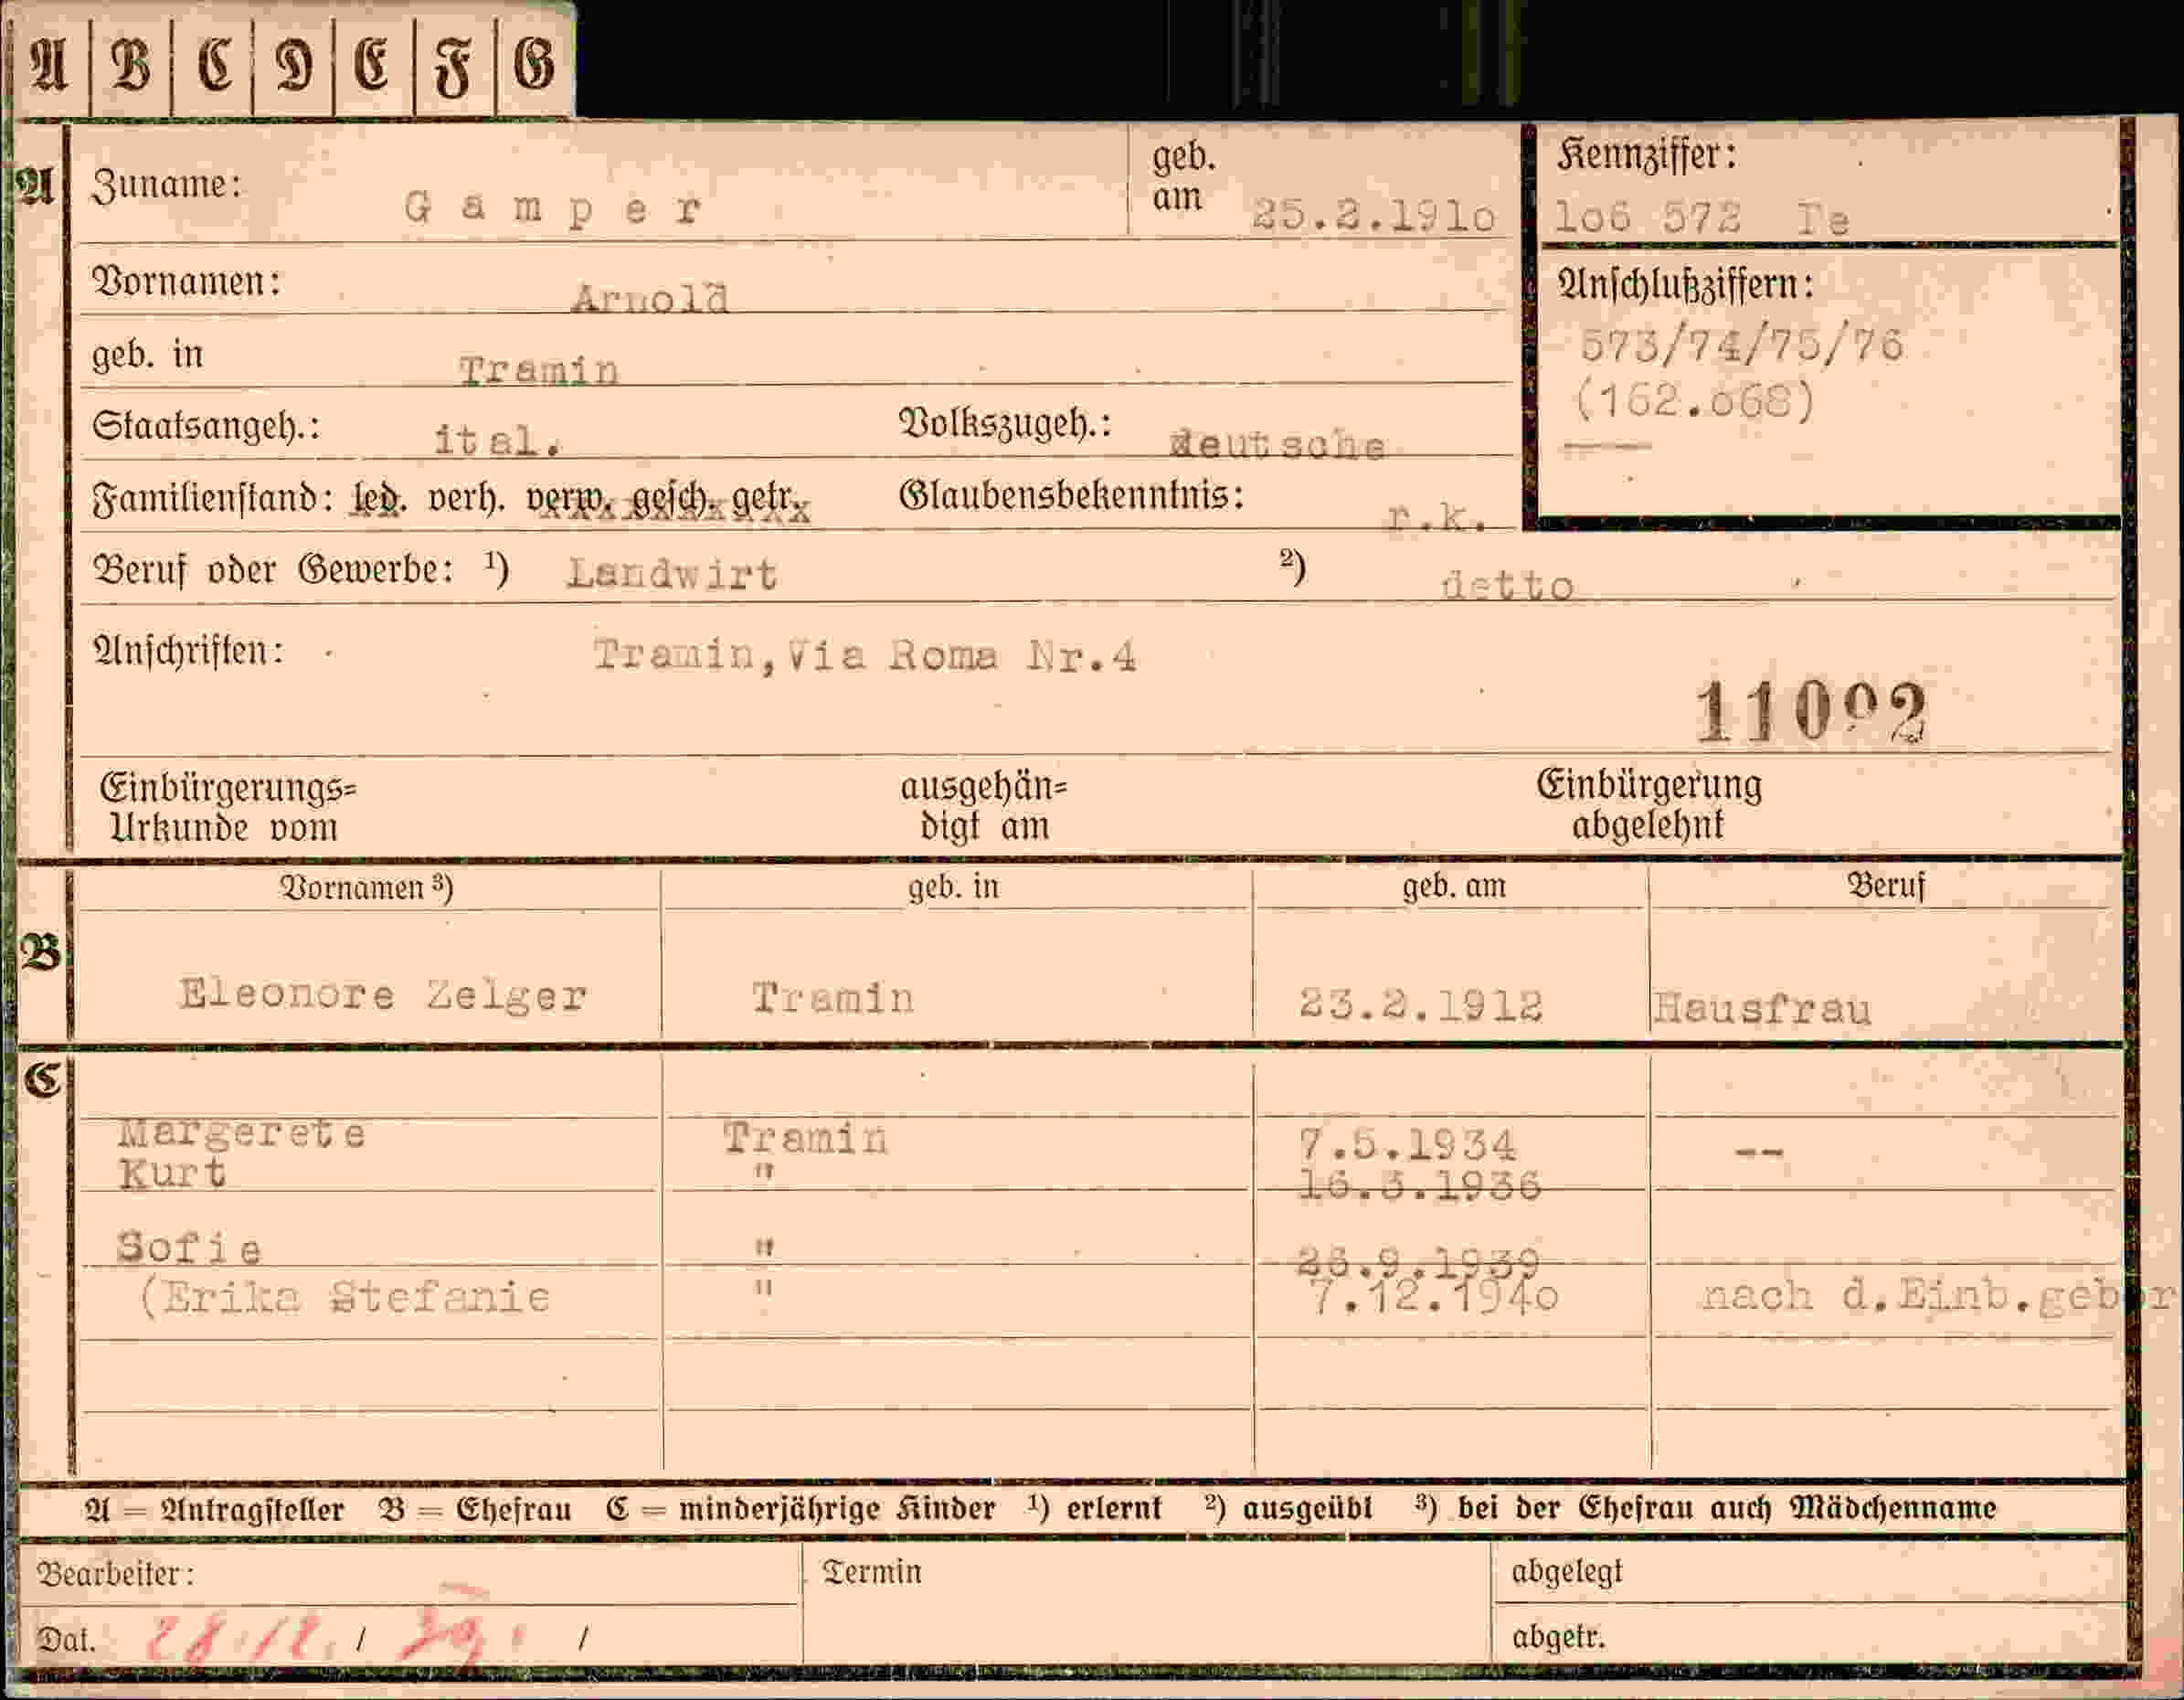 A B C D E F G
A Zuname: Gamper geb. am 25.2.191o
Kennziffer:
1o6 572 Te
Vornamen: Arnold
Anschlußziffern:
573/74/75/76
(162.668)
geb. in Tramin
Staatsangeh.: ital. Volkszugeh.: deutsche
Familienstand: led. verh. verw. gesch. getr. Glaubensbekenntnis: r.k.
Beruf oder Gewerbe: ¹) Landwirt ²) detto
Anschriften: Tramin,Via Roma Nr.4
11092
Einbürgerungs= Urkunde vom ausgehän= digt am Einbürgerung abgelehnt
Vornamen ³) geb. in geb. am Beruf
B
Eleonore Zelger Tramin 23.2.1912 Hausfrau
C
Margerete Tramin 7.5.1934 --
Kurt " 16.3.1936
Sofie " 1939
(Erika Stefanie " 7.12.194o nach d.Einb.gebor
A = Antragsteller B = Ehefrau C = minderjährige Kinder ¹) erlernt ²) ausgeübt ³) bei der Ehefrau auch Mädchenname
Bearbeiter: Termin abgelegt
Dat. 28/12. / 39. / abgetr.